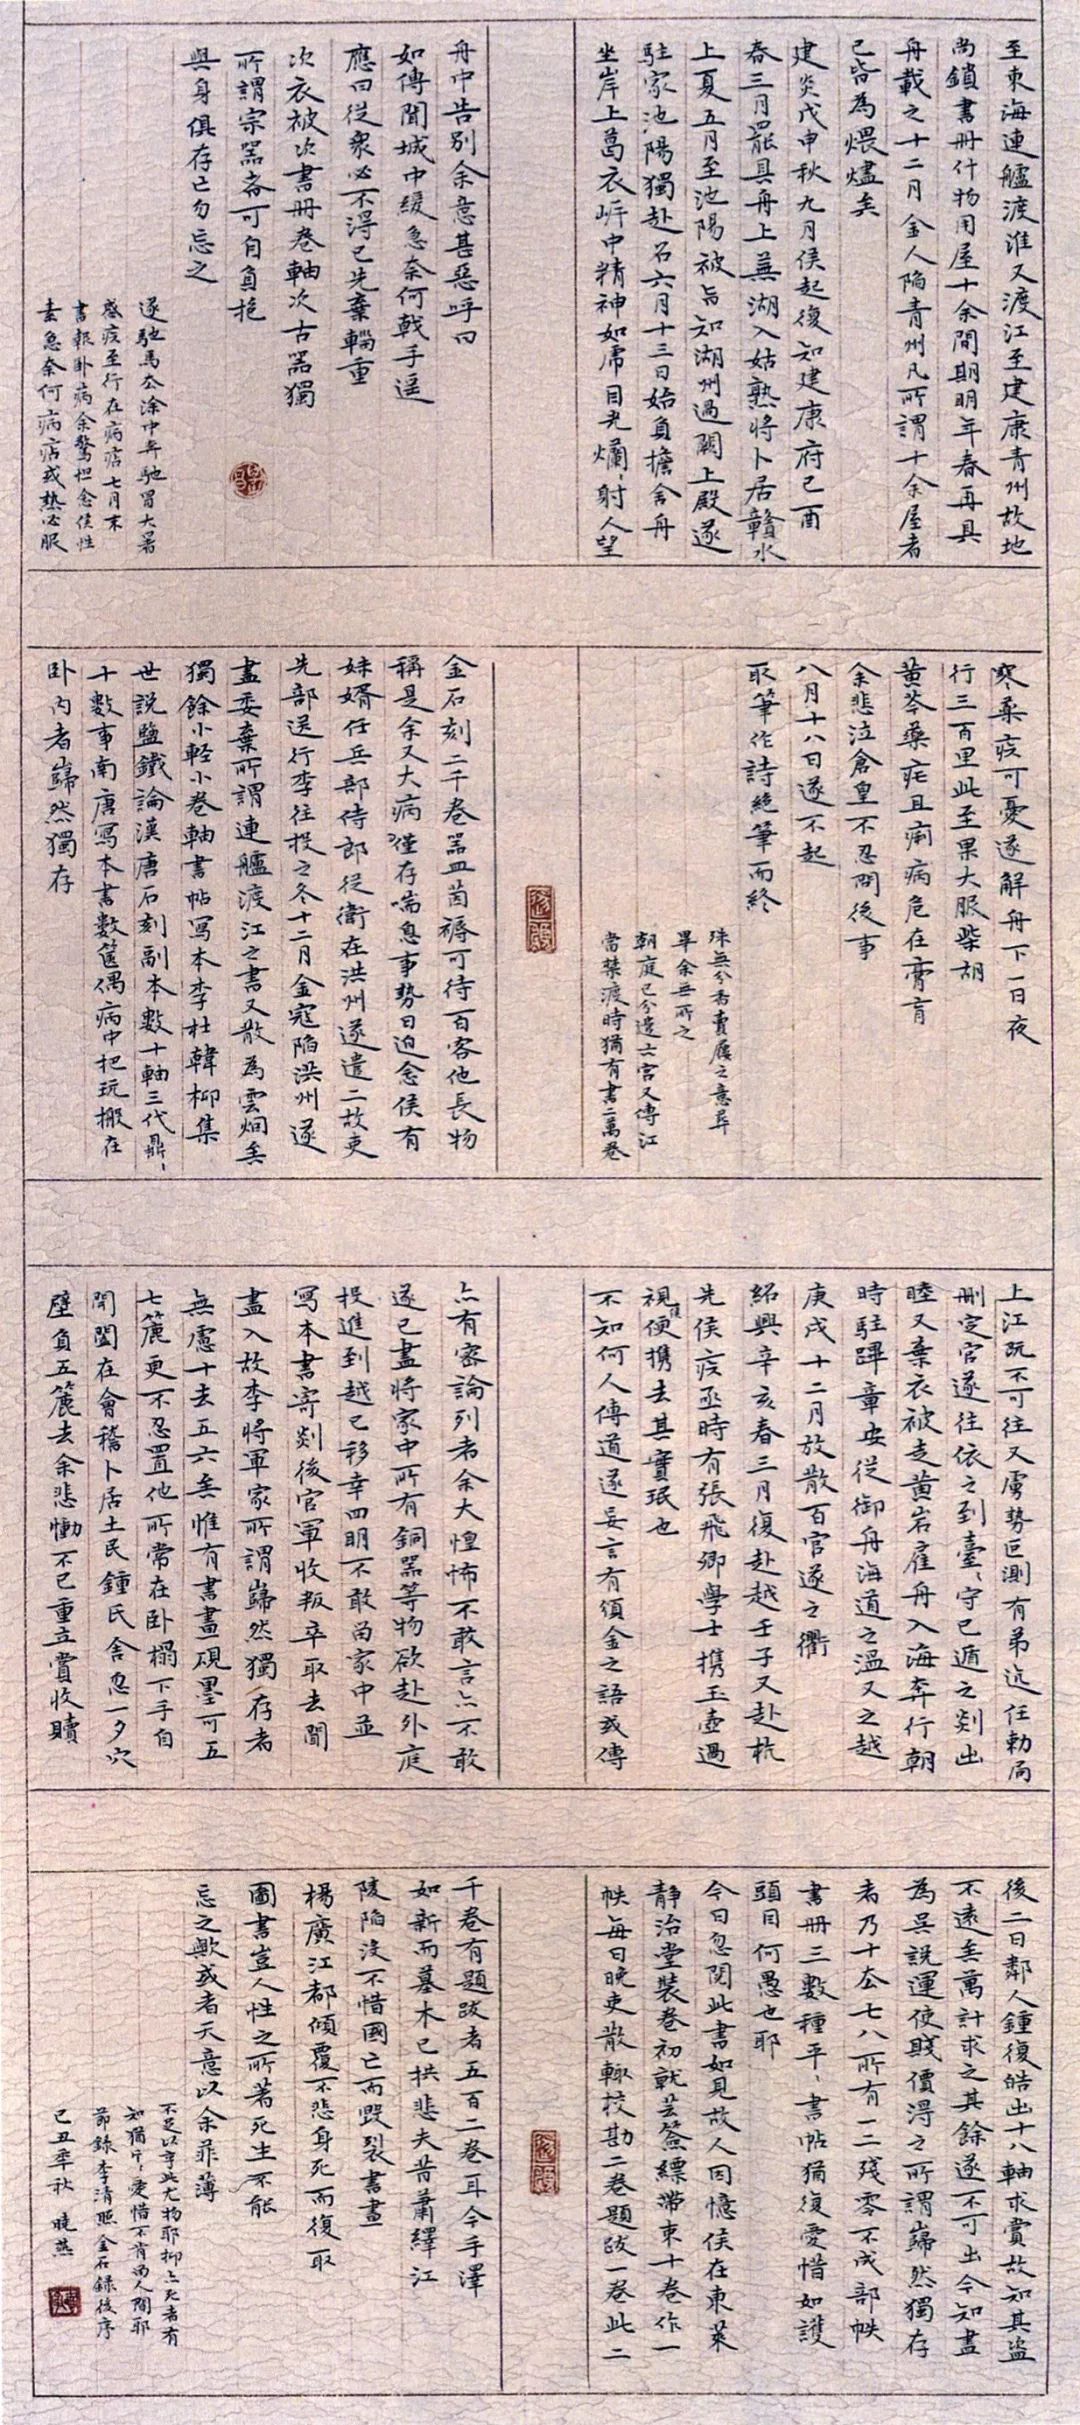 至東海連艫渡淮又渡江至建康青州故地
尚鎖書冊什物用屋十余間期明年春再具
舟載之十二月金人陷青州凡所謂十余屋者
已皆為煨燼矣
建炎戊申秋九月侯起復知建康府己酉
春三月罷具舟上蕪湖入姑熟將卜居贛水
上夏五月至池陽被旨知湖州過闕上殿遂
駐家池陽獨赴召六月十三日始負擔舍舟
坐岸上葛衣岸中精神如虎目光爛〻射人望
舟中告別余意甚惡呼曰
如傳聞城中緩急奈何戟手遥
應曰從衆必不得已先棄輜重
次衣被次書冊卷軸次古器獨
所謂宗器者可自負抱
與身俱存亡勿忘之
遂馳馬去涂中奔馳冒大暑
感疾至行在病痁七月末
書報卧病余驚怛念侯性
素急奈何病痁或熱必服
寒藥疾可憂遂解舟下一日夜
行三百里比至果大服柴胡
黄芩藥瘧且痢病危在膏肓
余悲泣倉皇不忍問後事
八月十八日遂不起
取筆作詩絶筆而終
殊無分香賣屨之意葬
畢余無所之
朝庭已分遣六宮又傳江
當禁渡時猶有書二萬卷
金石刻二千卷器皿茵褥可待百客他長物
稱是余又大病僅存喘息事勢日迫念侯有
妹婿任兵部侍郎從衛在洪州遂遣二故吏
先部送行李往投之冬十二月金寇陷洪州遂
盡委棄所謂連艫渡江之書又散為雲烟矣
獨餘小軽小卷軸書帖写本李杜韓柳集
世説鹽鐵論漢唐石刻副本數十軸三代鼎〻
十數事南唐寫本書數篋偶病中把玩搬在
卧内者巋然獨存
上江既不可往又虜勢叵測有弟迒任勅局
刪定官遂往依之到臺〻守已遁之剡出
睦又棄衣被走黄岩雇舟入海奔行朝
時駐蹕章安從御舟海道之溫又之越
庚戌十二月放散百官遂之衢
紹興辛亥春三月復赴越壬子又赴杭
先侯疾亟時有張飛卿學士携玉壺過
視侯便携去其實珉也
不知何人傳道遂妄言有頒金之語或傳
亦有密論列者余大惶怖不敢言亦不敢
遂已盡將家中所有銅器等物欲赴外庭
投進到越已移幸四明不敢留家中並
寫本書寄剡後官軍收叛卒取去聞
盡入故李將軍家所謂巋然獨存者
無慮十去五六矣惟有書畫硯墨可五
七簏更不忍置他所常在卧榻下手自
開闔在會稽卜居土民鍾氏舍忽一夕穴
壁負五簏去余悲慟不已重立賞收贖
後二日鄰人鍾復皓出十八軸求賞故知其盗
不遠矣萬計求之其餘遂不可出今知盡
為吳説運使賤價得之所謂巋然獨存
者乃十去七八所有一二殘零不成部帙
書冊三數種平〻書帖猶復愛惜如護
頭目何愚也耶
今日忽閱此書如見故人因憶侯在東萊
静治堂裝卷初就芸簽縹帶束十卷作一
帙每日晚吏散輙校勘二卷題跋一卷此二
千卷有題跋者五百二卷耳今手澤
如新而墓木已拱悲夫昔蕭繹江
陵陷没不惜國亡而毀裂書畫
楊廣江都傾覆不悲身死而復取
圖書豈人性之所著死生不能
忘之歟或者天意以余菲薄
不足以享此尤物耶抑亦死者有
知猶斤〻愛惜不肯留人間耶
節錄李清照金石錄後序
己丑年秋 曉燕